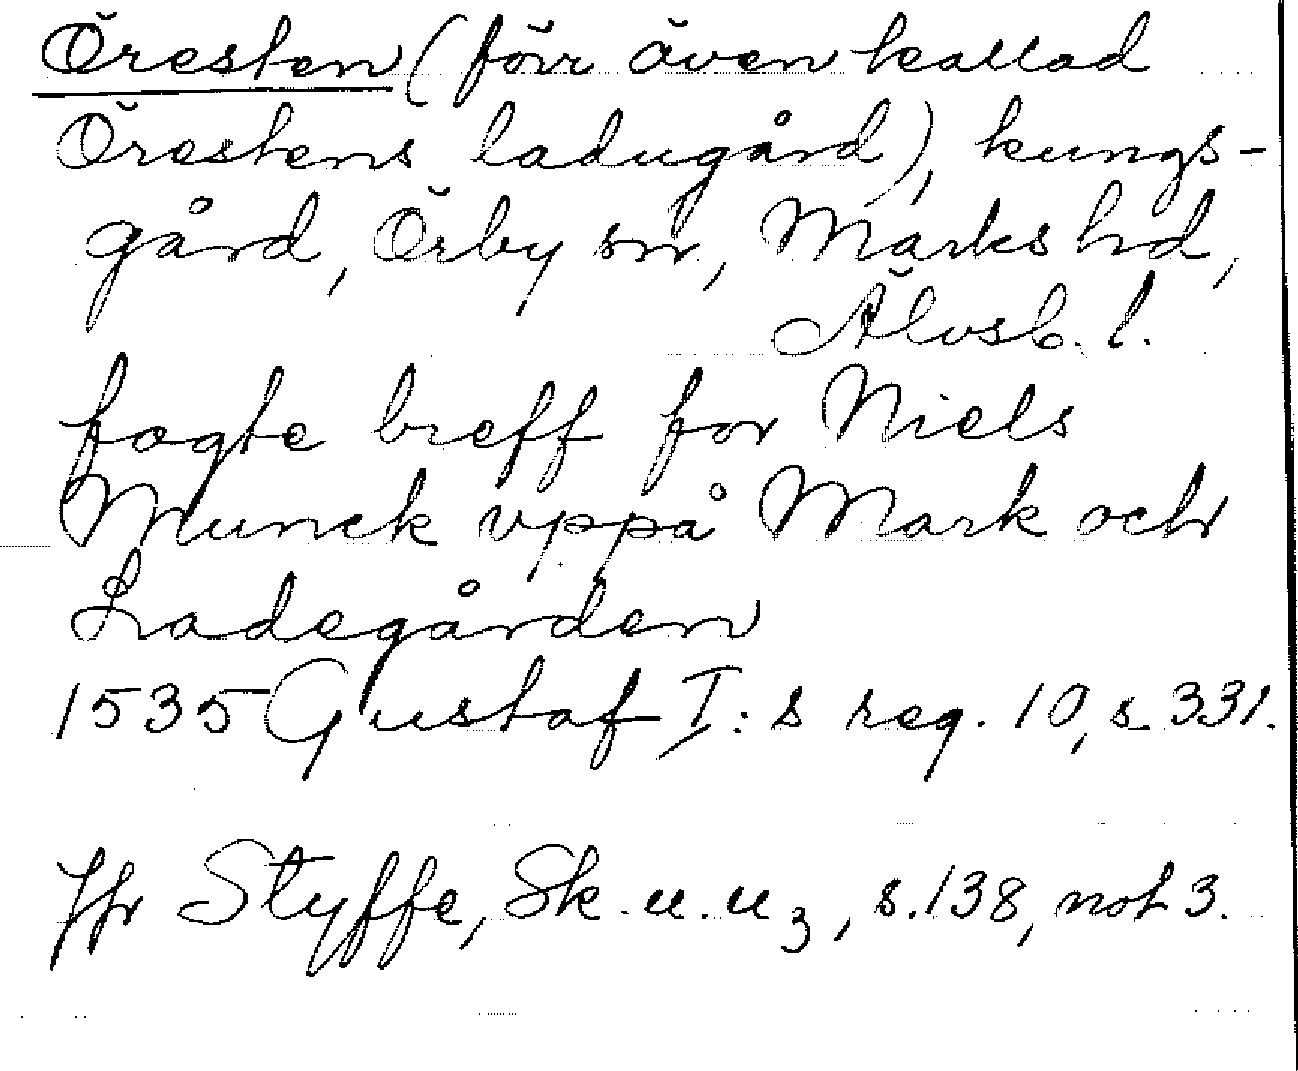 Öresten (förr även kallad
Örestens ladugård), kungs-
gård, Örby sn, Marks hd,
Älvsb. l.
fogte breff for Niels
Munck vppå Mark och
Ladegården
1535 Gustaf I:s reg. 10, s. 331.
Jfr Styffe, Sk. u. u3, s. 138, not 3.